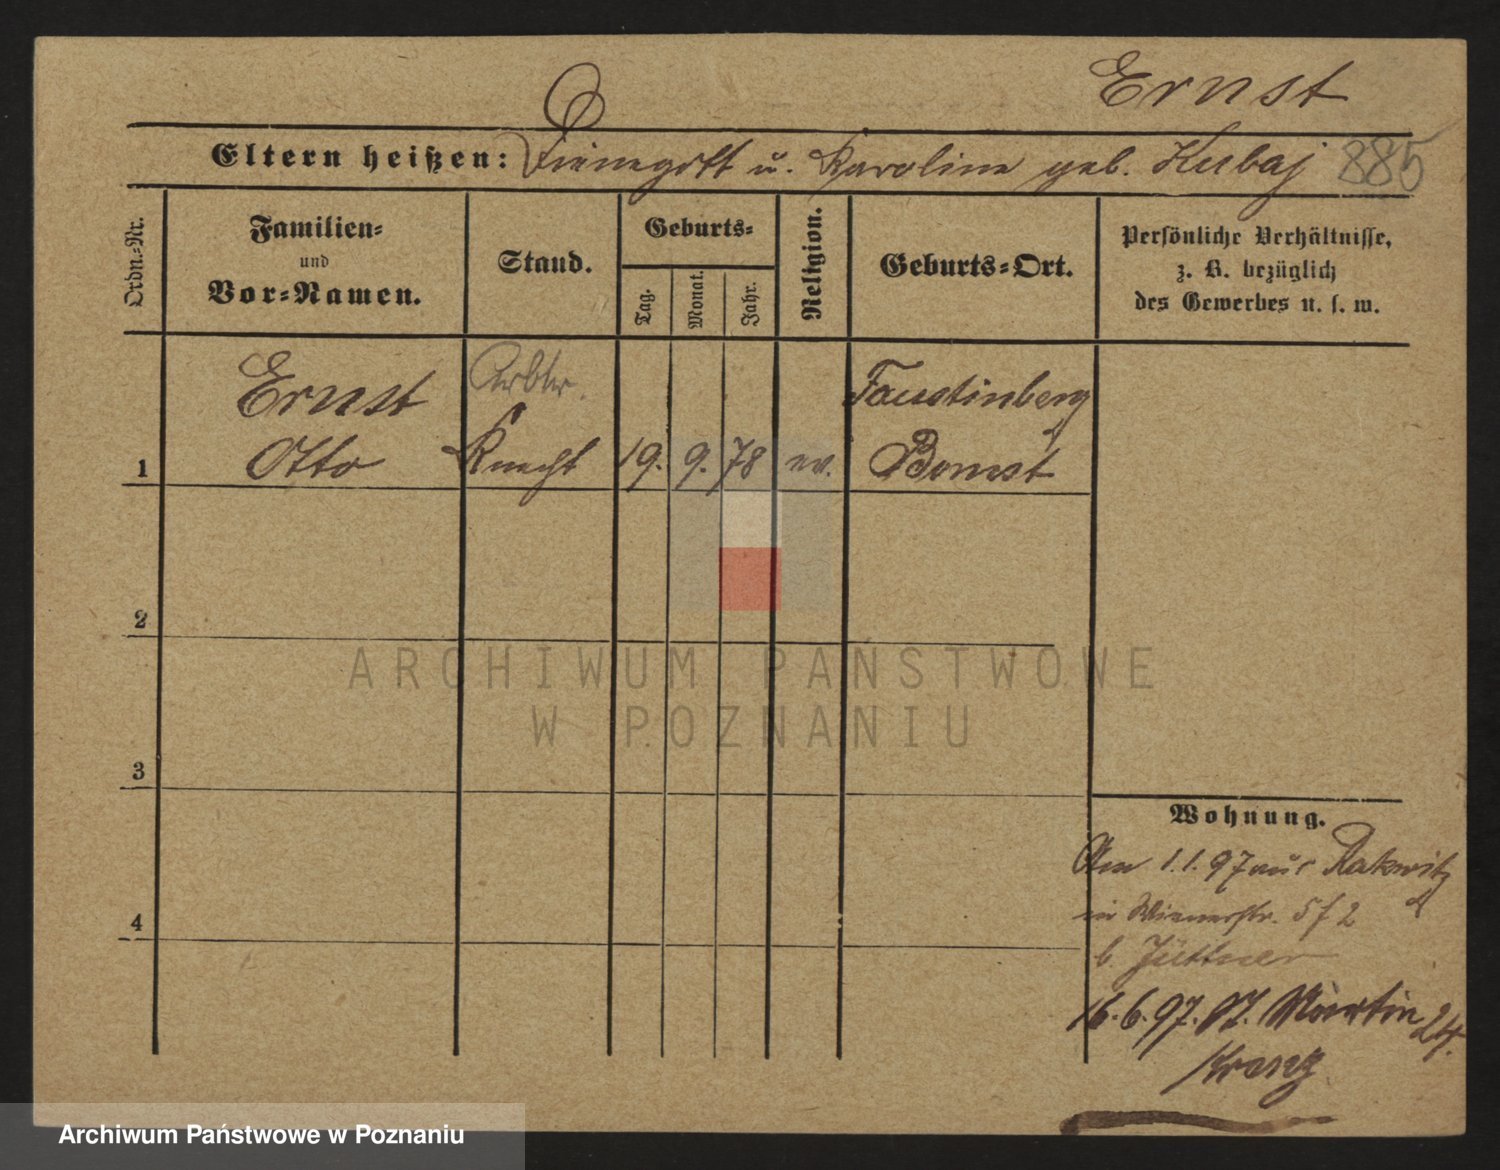 Ernst
Eltern heißen: Dienegott u. Karoline geb. Kubaj 885
Ordn.-Nr.
Familien-
und
Vor-Namen.
Stand.
Geburts-
Tag.
Monat.
Jahr.
Religion.
Geburts-Ort.
Persönliche Verhältnisse,
z. B. bezüglich
des Gewerbes u. s. w.
Ernst Arbtr. Faustinberg
1 Otto Knecht 19. 9. 78 ev. Bomst
2
3
4
Wohnung.
Am 1.1.97 aus Rakwitz
in Wienerstr. 5 f 2
b. Jüttner
16.6.97. St. Martin 24.
Kranz
ARCHIWUM PAŃSTWOWE
W POZNANIU
Archiwum Państwowe w Poznaniu